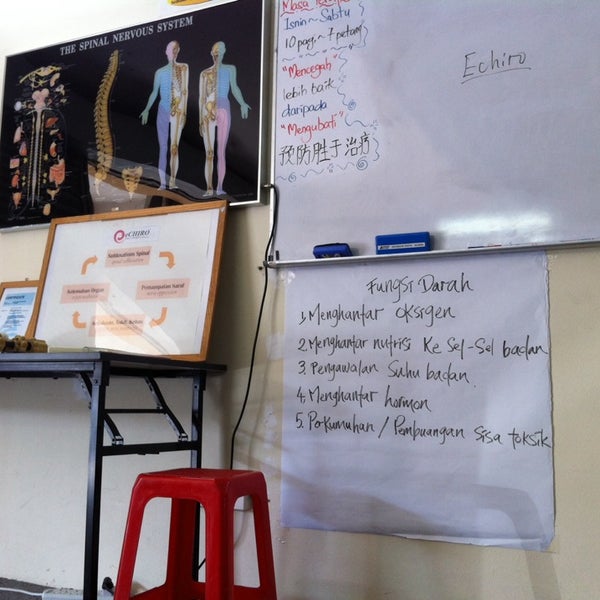 THE SPINAL NERVOUS SYSTEM
eCHIRO
Subluksatium Spinal
Kelemahan Organ
Pemampatan Saraf
Masa
Isnin ~ Sabtu
10 pagi ~ 7 petang
"Mencegah"
lebih baik
daripada
"Mengubati"
预防胜于治疗
Echiro
Fungsi Darah
1. Menghantar oksigen
2. Menghantar nutrisi Ke Sel-Sel badan
3. Pengawalan Suhu badan.
4. Menghantar hormon
5. Perkumuhan / Pembuangan Sisa toksik